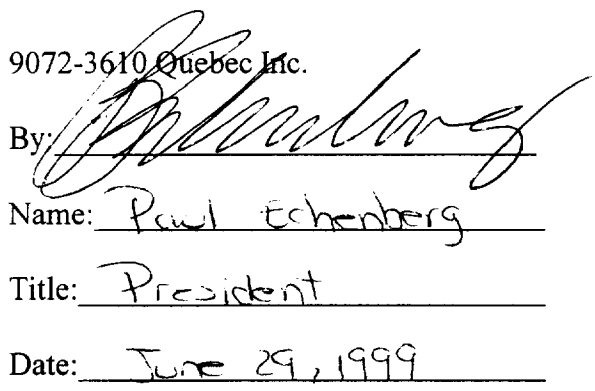 9072-3610 Quebec Inc.
By:
Name: Paul Echenberg
Title: President
Date: June 29, 1999